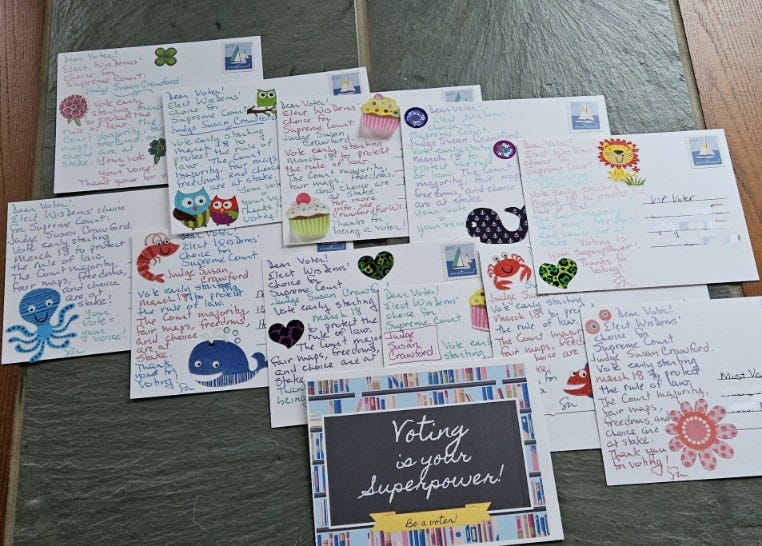 Dear Voter!
Elect WisDems'
choice for
Supreme Court:
Judge Susan Crawford
Vote early starting
the rule of law.
fair maps,
choice are
stake!
Your vote
your voice
Dear Voter!
Elect WisDems'
choice for
Supreme Court
Judge Susan Crawford
Vote early starting
March 18 to
protect the rule
of law. The Court
majority, fair
maps, freedoms,
and choice are
at stake
Voting
Dear Voter!
Elect WisDems'
choice for
Supreme Court:
Judge Susan
Crawford
Vote early starting
March 18 to protect
the rule of law.
The Court majority,
fair maps, freedoms,
and choice are
at stake
CrawfordforWI
Thanks for
being a Voter!
Dear Voter!
Elect WisDems'
choice
Supreme Court
Judge Susan Crawford
Vote early starting
March 18 to protect
the rule of law.
The Court
majority, fair maps,
freedoms, and choice
are at stake
your vote
Dear Voter!
Elect WisDems'
choice for
Supreme Court
Judge Susan Crawford
Vote early starting
March 18 to protect
the rule of law.
The Court majority,
fair maps,
freedoms, and
choice are at
stake.
Voting is
your superpower!
Thanks for
voting!
VIP Voter
Dear Voter!
Elect WisDems' choice
for Supreme Court:
Judge Susan Crawford
Vote early starting
March 18 to protect
the rule of law.
The Court majority,
fair maps, freedoms,
and choice
are at
stake.
Your
vote =
your voice!
Dear Voter!
Elect WisDems'
choice for
Supreme Court
Judge Susan
Crawford
Vote early starting
March 18 to protect
the rule of law.
The Court majority,
fair maps, freedoms,
and choice
are at
stake.
Thank
you for
voting!
Dear Voter!
Elect WisDems'
choice for
Supreme Court
Judge Susan Crawford
Vote early starting
March 18
to protect
the rule of law.
The Court majority,
fair maps, freedoms,
and choice are at
stake
Thank
being
Dear Voter!
Elect WisDems'
choice for
Supreme Court
Judge
Susan
Crawford
Vote early
starting
Judge Susan
Crawford
Vote early starting
March 18 to protect
the rule of law.
The Court majority,
fair maps, freedoms,
and choice are
at stake.
for
voting!
Dear Voter!
Elect WisDems'
choice for
Supreme Court
Judge Susan Crawford.
Vote early starting
March 18 to protect
the rule of law.
The Court majority,
fair maps,
freedoms, and
choice are
at stake.
Thank you
for voting!
Must Va
Voting
is your
Superpower!
Be a voter!